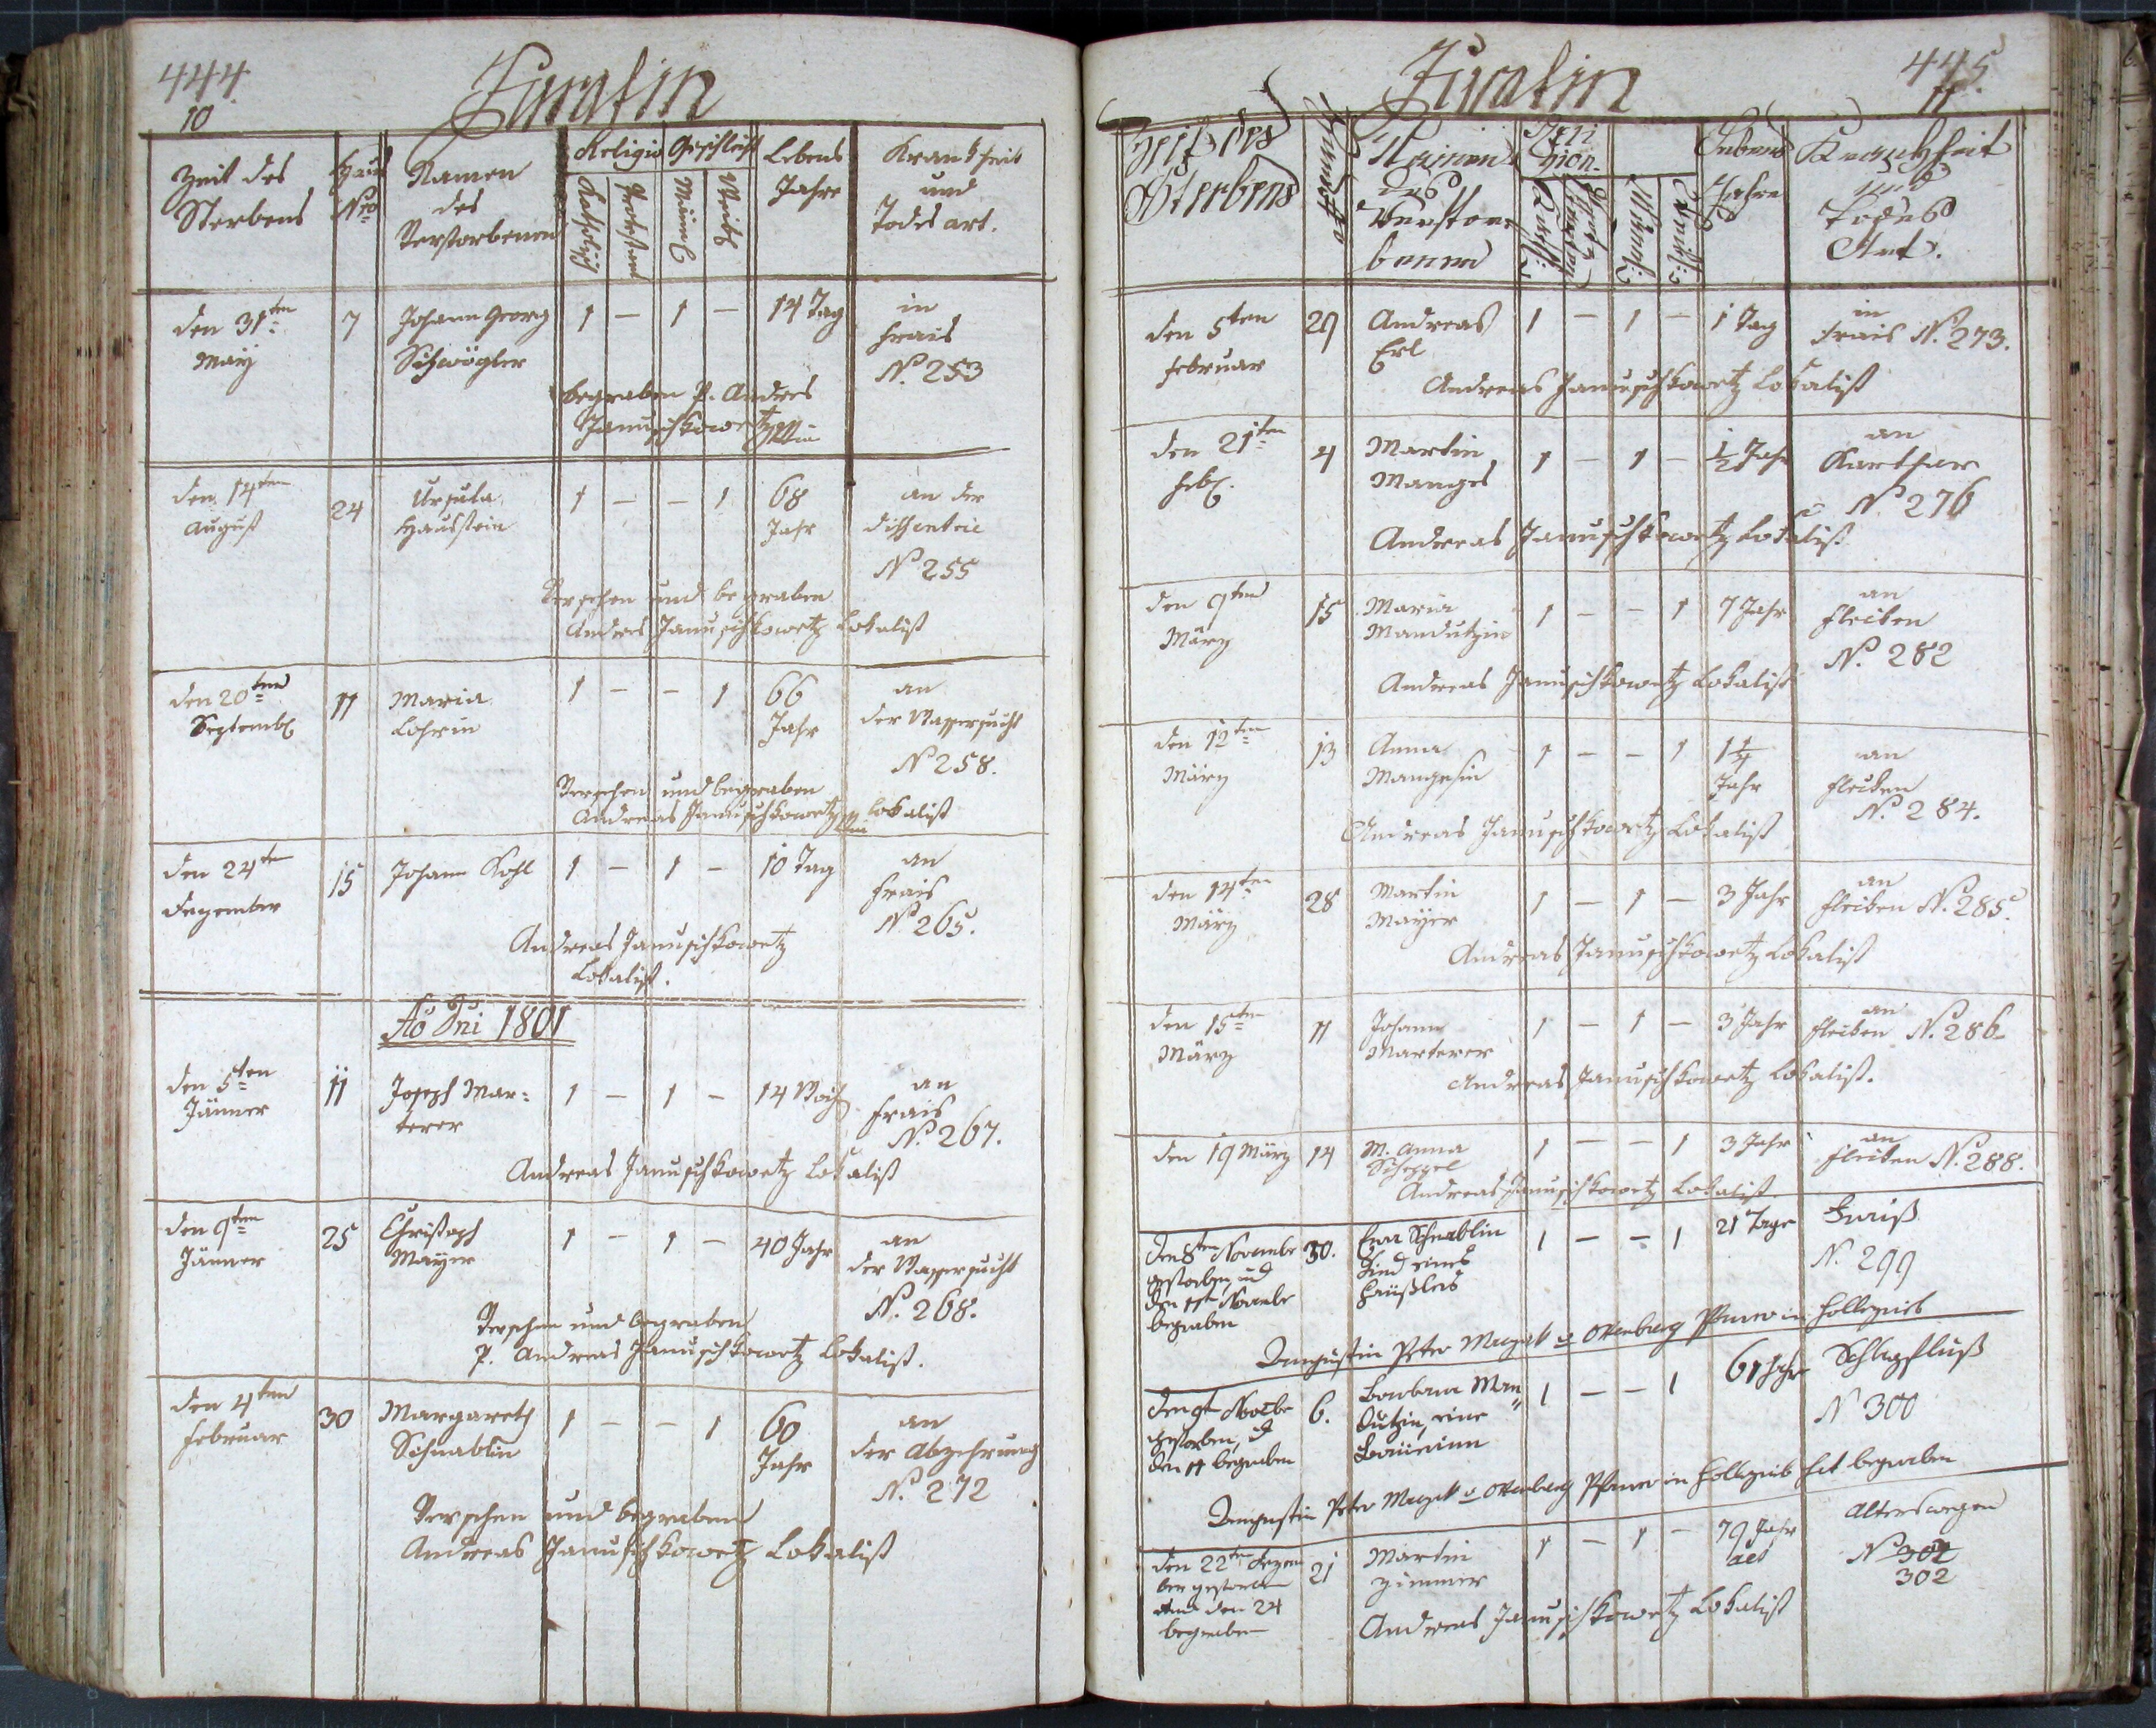 444
10
Turasin
Zeit des
Sterbens
Haus
Nro
Namen
des
Verstorbenen
Religio
Geschlecht
Katholisch
Protestant
Männl
Weibl
Lebens
Jahre
Krankheit
und
Todes art.
den 31ten
May
7
Johann Georg
Schwögler
1 — 1 —
14 Tag
in
Frais
No. 253
begraben P. Andres
Januschkowetz
den 14ten
August
24
Ursula
Hausstein
1 — — 1
68
Jahr
an der
dissenterie
No 255
Versehen und begraben
Andreas Januschkowetz Lokalist
den 20ten
Septemb
11
Maria
Lohrin
1 — — 1
66
Jahr
an
der Wassersucht
No 258.
Versehen und begraben
Andreas Januschkowetz Lokalist
den 24te
Dezember
15
Johann Kohl
1 — 1 —
10 Tag
an
Frais
No 265.
Andreas Januschkowetz
Lokalist.
Ao Dni 1801
den 5ten
Jänner
11
Joseph Mar:
terer
1 — 1 —
14 Woch
an
Frais
No. 267.
Andreas Januschkowetz Lokalist
den 9ten
Jänner
25
Christoph
Mayer
1 — 1 —
40 Jahr
an
der Wassersucht
No. 268.
Versehen und begraben
P. Andreas Januschkowetz Lokalist.
den 4ten
Februar
30
Margareth
Schnablin
1 — — 1
60
Jahr
an
der Abzehrung
No. 272
Versehen und begraben
Andreas Januschkowetz Lokalist
445
11
Turasin
Zeit des
Sterbens
Namen
des
Verstor
benen
Reli
gion.
Kath:
Männl:
Weibl:
Lebens
Jahre
Krankheit
und
Todes
Art.
den 5ten
Februar
29
Andreas
Erl
1 — 1 —
1 Tag
in
Frais No. 273.
Andreas Januschkowetz Lokalist
den 21ten
Feb.
4
Martin
Manges
1 — 1 —
1/2 Jahr
an
Karthar
No 276
Andreas Januschkowetz Lokalist
den 9ten
März
15
Maria
Mandutzin
1 — — 1
7 Jahr
an
Flecken
No. 282
Andreas Januschkowetz Lokalist
den 12ten
März
13
Anna
Mangesin
1 — — 1
1 1/4
Jahr
an
Flecken
No. 284.
Andreas Januschkowetz Lokalist
den 14ten
März
28
Martin
Mayer
1 — 1 —
3 Jahr
an
Flecken No. 285.
Andreas Januschkowetz Lokalist
den 15ten
März
11
Johann
Marterer
1 — 1 —
3 Jahr
an
Flecken No. 286
Andreas Januschkowetz Lokalist.
den 19 März
14
M. Anna
Scheppel
1 — — 1
3 Jahr
an
Flecken No. 288.
Andreas Januschkowetz Lokalist
den 8ten Novembr
gestorben, und
den 11ten Novembr
begraben
30.
Eva Schnablin
Kind eines
Häußlers
1 — — 1
21 Tage
Frais
N. 299
Augustin Peter Pfarrer in
den 9t Novbr
gestorben, d
den 11 begraben
6.
Barbara Man
dutzin, eine
Bäuerinn
1 — — 1
61 Jahr
Schlagfluß
N 300
Augustin Peter Pfarrer in hat begraben
den 22ten Dezem
ber gestorben
und den 24
begraben
21
Martin
Zimmer
1 — 1 —
79 Jahr
alt
Alterswegen
No 302
302
Andreas Januschkowetz Lokalist